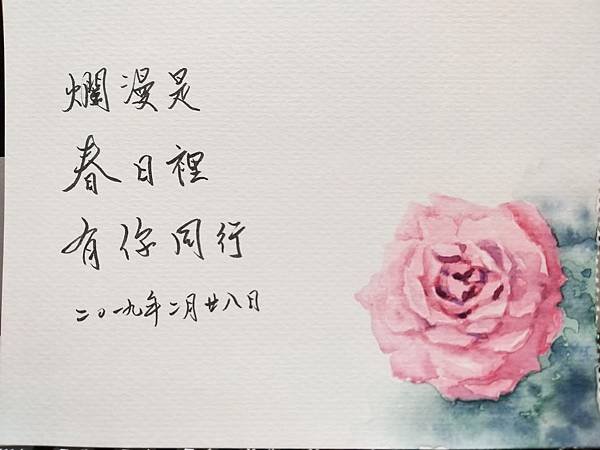 爛漫是
春日裡
有你同行
二〇一九年二月廿八日